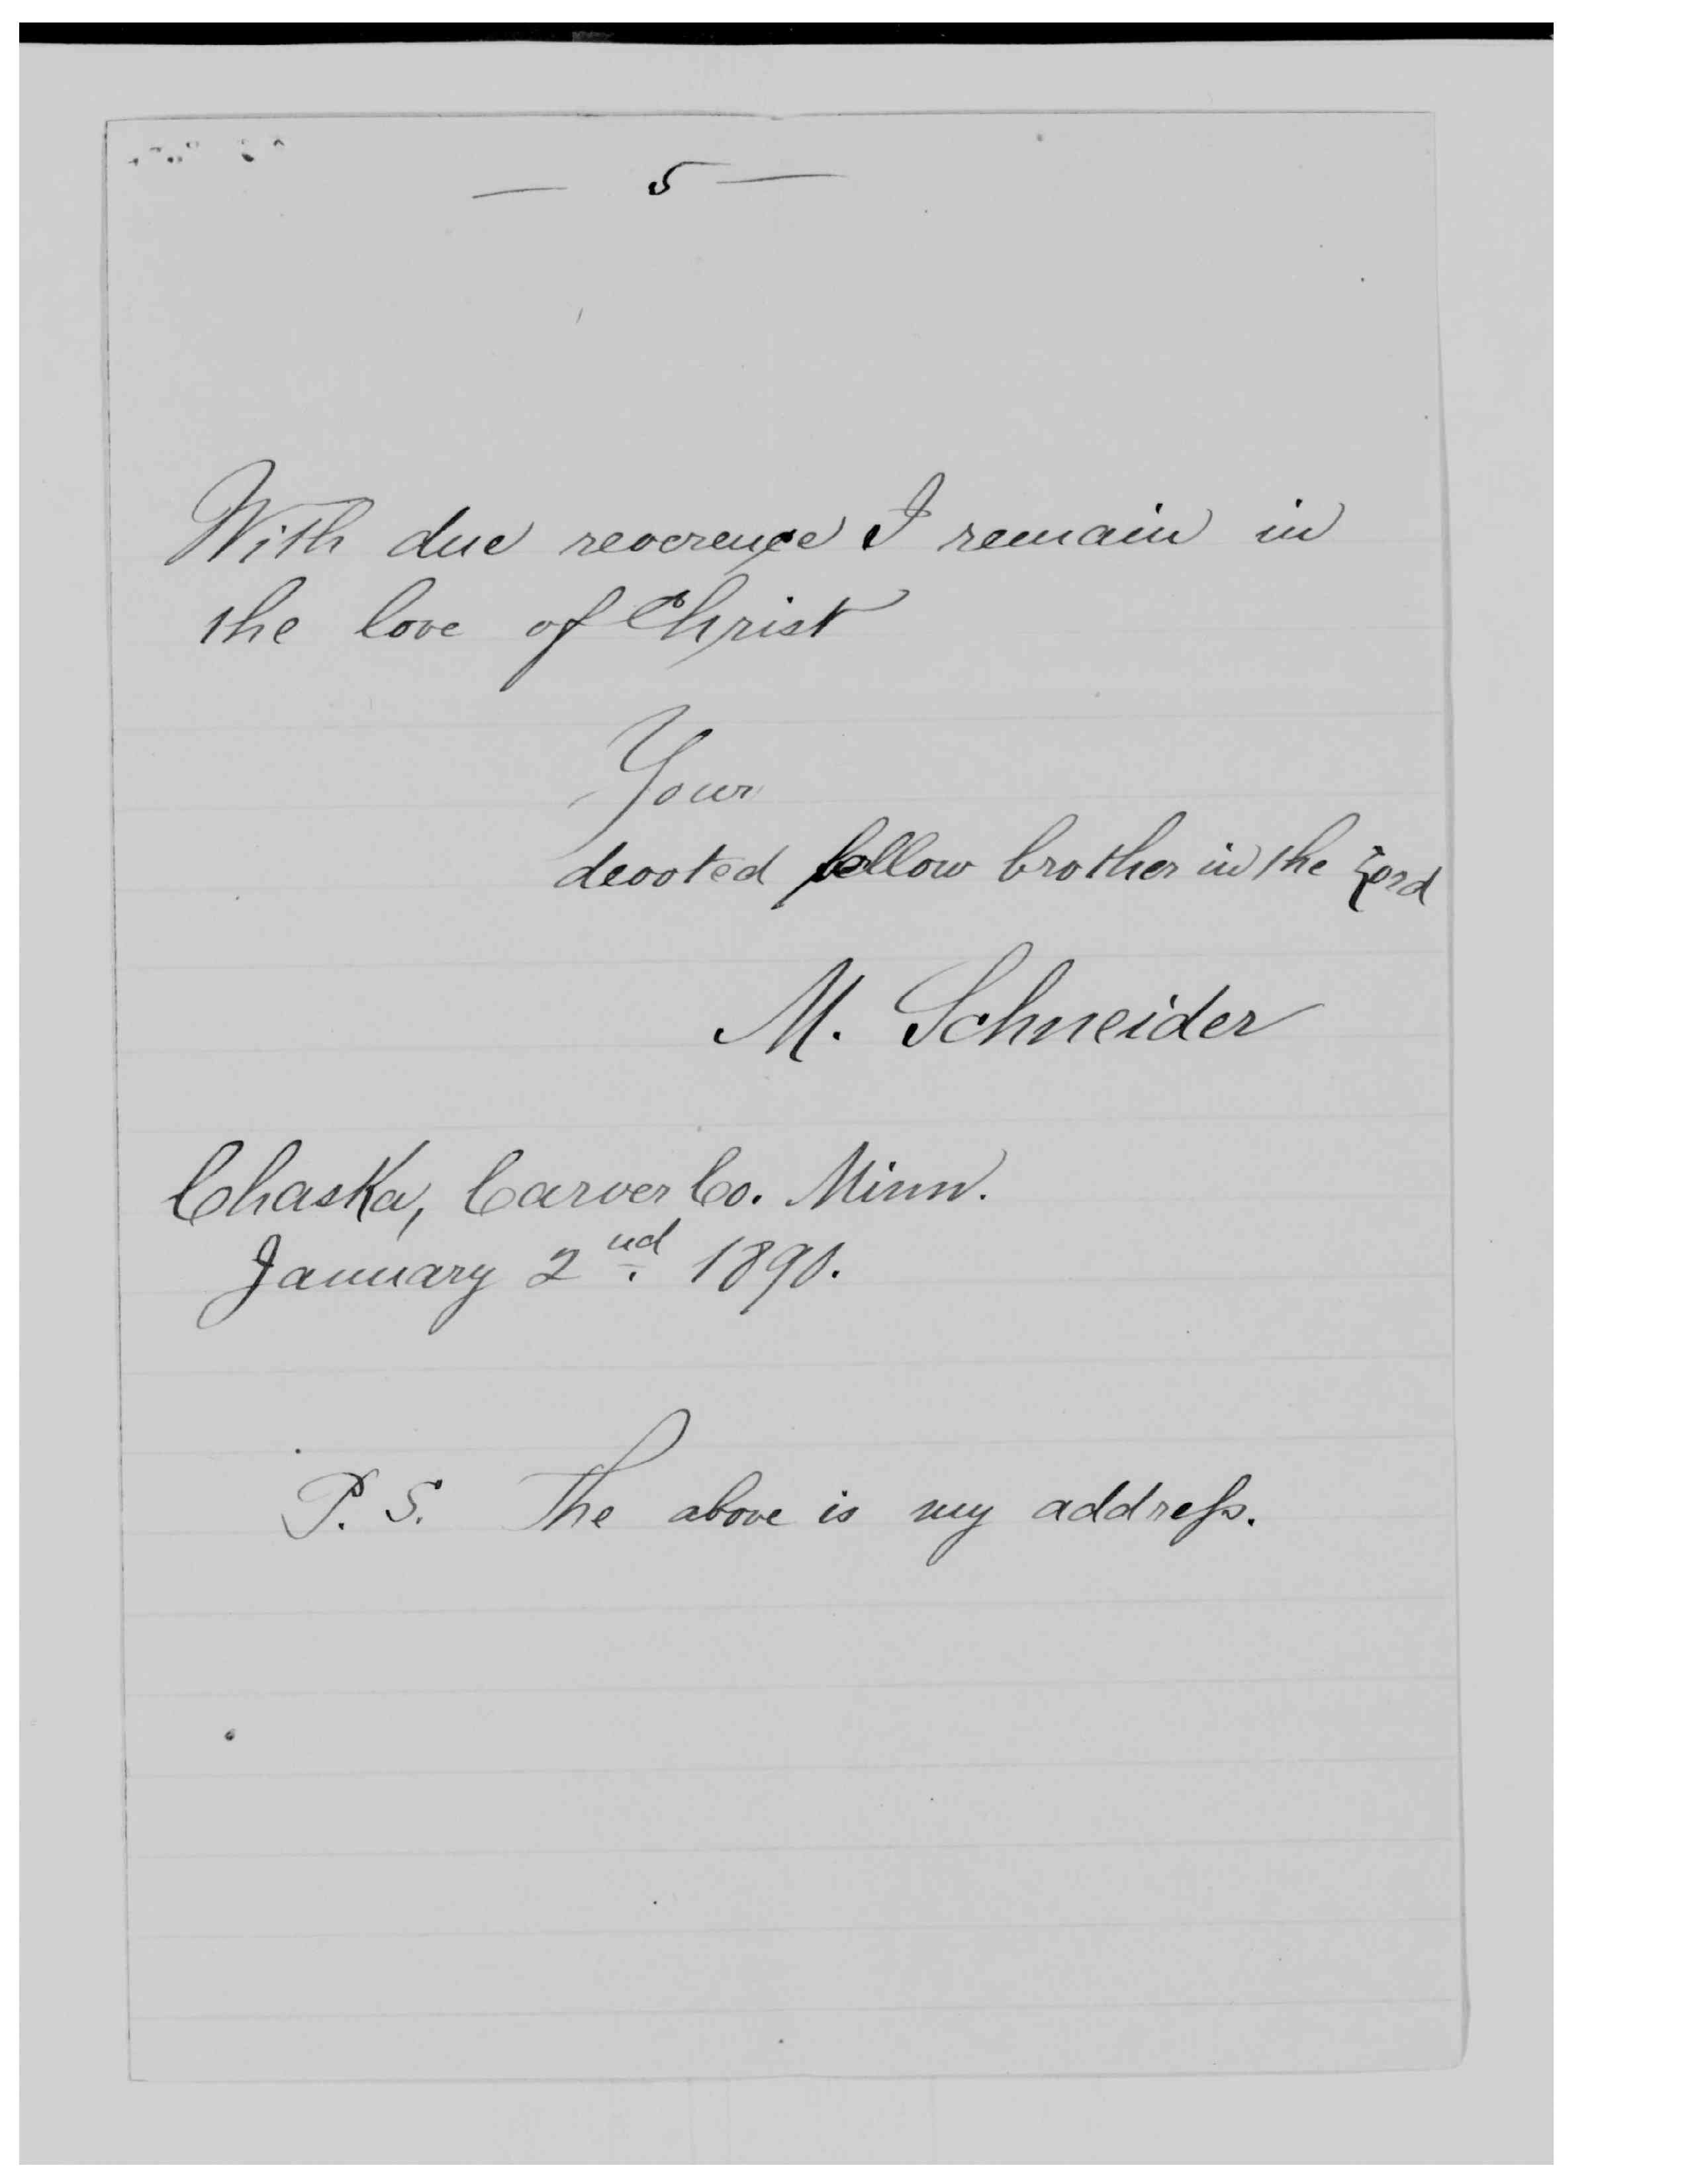 — 5 —
With due reverence I remain in
the love of Christ
Your
devoted fellow brother in the Lord
M. Schneider
Chaska, Carver Co. Minn.
January 2nd. 1890.
P. S. The above is my address.